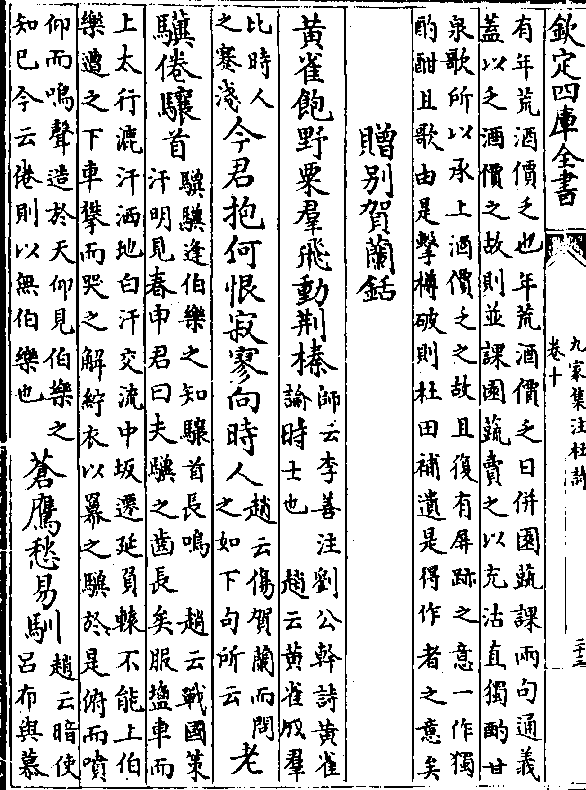 欽定四庫全書
九家集注杜詩
卷十
二十三
有年荒酒價乏也年荒酒價乏日併園蔬課兩句通義
蓋以乏酒價之故則並課園蔬賣之以充沽直獨酌甘
泉歌所以承上酒價乏之故且復有屏跡之意一作獨
酌酣且歌由是擊樽破則杜田補遺是得作者之意矣
贈别賀蘭銛
黄雀飽野粟羣飛動荆榛師云李善注劉公幹詩黄雀
諭時士也 趙云黄雀成羣
比時人
之褰淺今君抱何恨寂寥向時人趙云傷賀蘭而問
之如下句所云老
驥倦驤首驥驥逢伯樂之知驤首長鳴 趙云戰國策
汗明見春申君曰夫驥之齒長矣服鹽車而
上太行漉汗洒地白汗交流中坂遷延負轅不能上伯
樂遭之下車攀而哭之解紵衣以羃之驥於是俯而噴
仰而鳴聲造於天仰見伯樂之
知巳今云倦則以無伯樂也蒼鷹愁易馴趙云暗使
吕布與慕